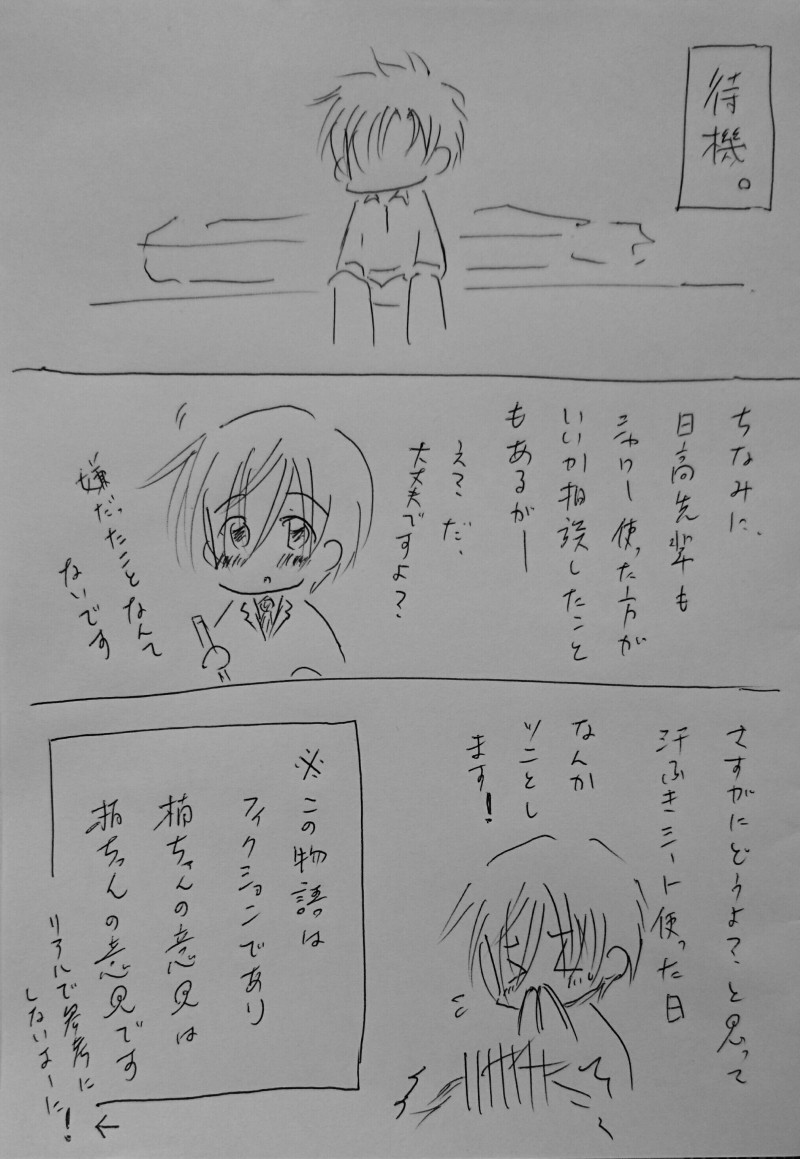 待機。
ちなみに、
日高先輩も
シャワー使った方が
いいか相談したこと
もあるがー
えっ だ、
大丈夫ですよ?
嫌だったことなんて
ないです
さすがにどうよ?と思って
汗ふきシート使った日
なんか
ツンとし
ます!
※この物語は
フィクションであり
柏ちゃんの意見は
柏ちゃんの意見です
リアルで参考に
しないよーに!